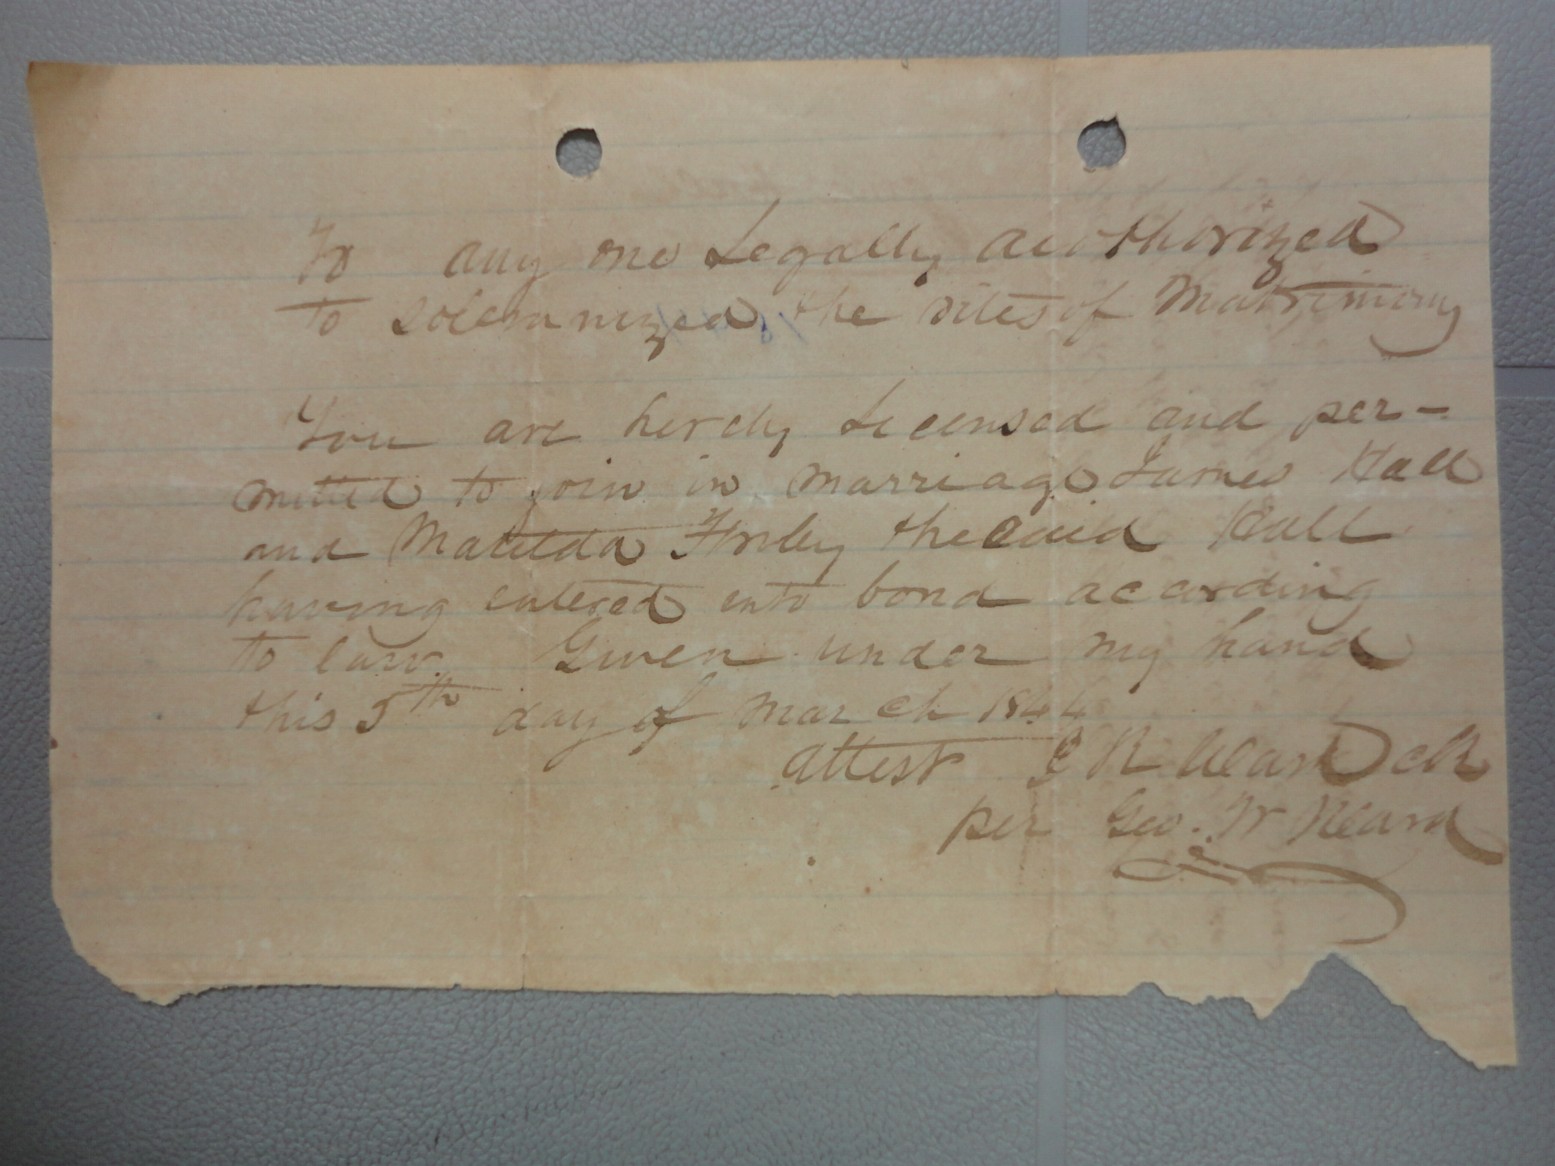 To any one Legally authorized
to solemnized the rites of Matrimony
You are hereby Licensed and per-
mitted to join in marriage James Hall
and Matilda the said Hall
having entered into bond according
to law. Given under my hand
this 5th day of March 1844
attest
per Geo. W Heard